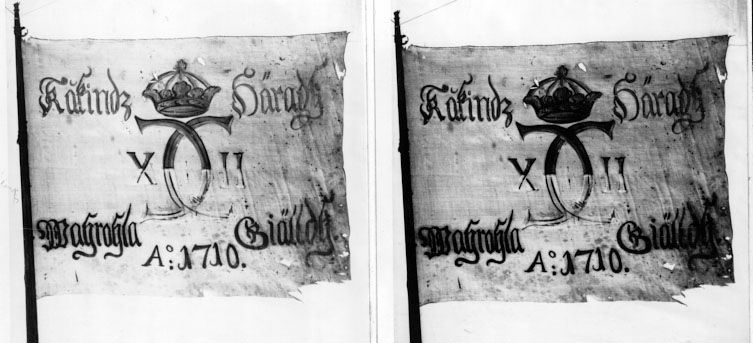 Kåkindz Härads
X II
Wahrohla Giälldh
A:o 1710.
Kåkindz Härads
X II
Wahrohla Giälldh
A:o 1710.